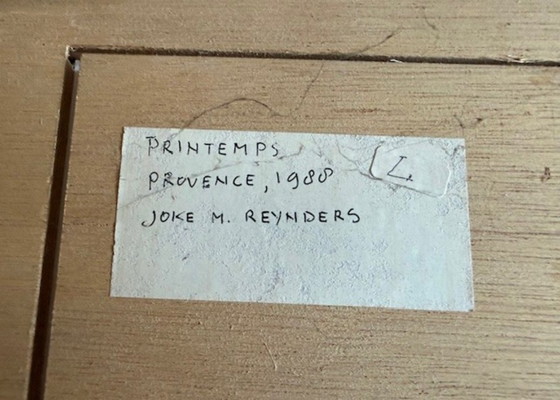 PRINTEMPS
PROVENCE, 1988
JOKE M. REYNDERS